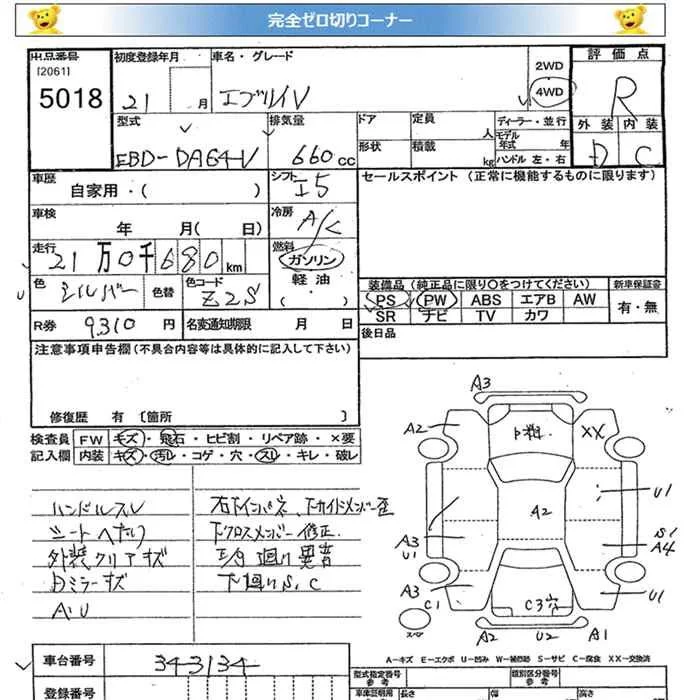 完全ゼロ切りコーナー
出品番号
[2061]
5018
初度登録年月
21 月
車名・グレード
エブリイV
2WD
4WD
評価点
R
外装 内装
D C
型式
EBD-DA64V
排気量
660cc
ドア
形状
定員
人
積載
kg
ディーラー・並行
モデル年式 年
ハンドル 左・右
車歴
自家用・( )
シフト
I5
セールスポイント (正常に機能するものに限ります)
車検
年 月( 日)
冷房
A/C
走行
21万0千680km
燃料
ガソリン
軽油
・( )
色
シルバー
色替
色コード
Z2S
装備品 (純正品に限り○をつけてください)
PS PW ABS エアB AW
SR ナビ TV カワ
新車保証書
有・無
R券 9310円
名変通知期限 月 日
後日品
注意事項申告欄(不具合内容等は具体的に記入して下さい)
修復歴 有 〔箇所 〕
検査員 FW キズ・飛石・ヒビ割・リペア跡・×要
記入欄 内装 キズ・汚レ・コゲ・穴・スレ・キレ・破レ
ハンドルスレ
シートヘタリ
外装クリアキズ
Dミラーキズ
A・U
右下インパネ、下サイドメンバー歪
下クロスメンバー修正.
下廻りS、C
A3
A2
XX
A2
U1
A3
U1
S1
A4
A3
C1
C3穴
U1
A2 U2 A1
スペア
A-キズ E-エクボ U-凹み W-補修跡 S-サビ C-腐食 XX-交換済
車台番号
343134
登録番号
型式指定番号
参考
類別区分番号
参考
車庫証明用
長さ 幅 高さ